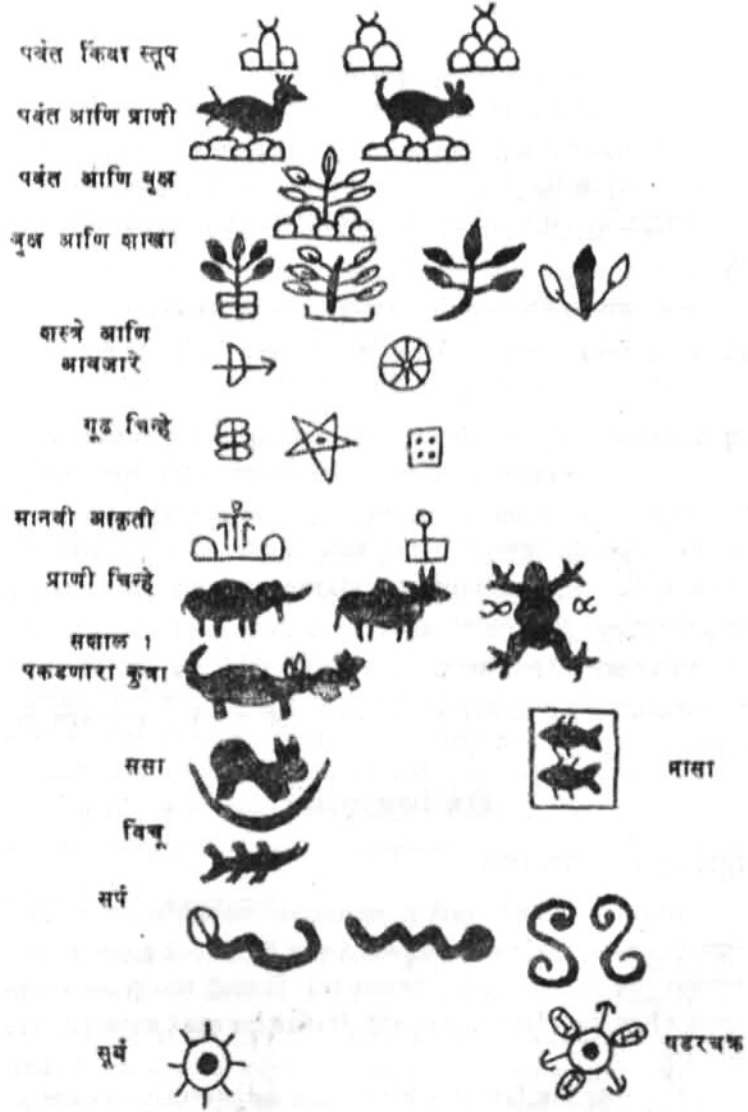 पर्वत किंवा स्तूप
पर्वत आणि प्राणी
पर्वत आणि वृक्ष
वृक्ष आणि शाखा
शस्त्रे आणि
आवजारे
गूढ चिन्हे
मानवी आकृती
प्राणी चिन्हे
सशाला
पकडणारा कुत्रा
ससा
मासा
विंचू
सर्प
सूर्य
षडरचक्र